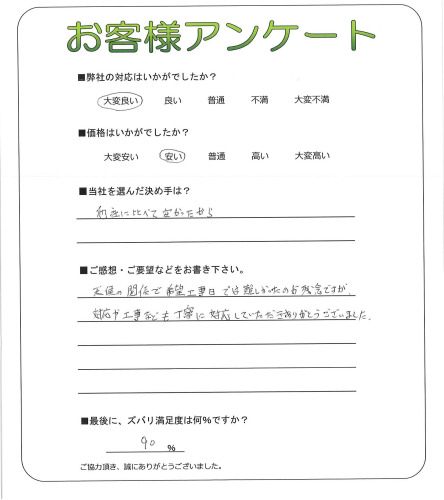 お客様アンケート
■弊社の対応はいかがでしたか?
大変良い 良い 普通 不満 大変不満
■価格はいかがでしたか?
大変安い 安い 普通 高い 大変高い
■当社を選んだ決め手は?
に比べて安かったから
■ご感想・ご要望などをお書き下さい。
天候の関係で希望工事日では難しかったのが残念ですが、
対応や工事なども丁寧に対応していただきありがとうございました。
■最後に、ズバリ満足度は何%ですか?
90 %
ご協力頂き、誠にありがとうございました。